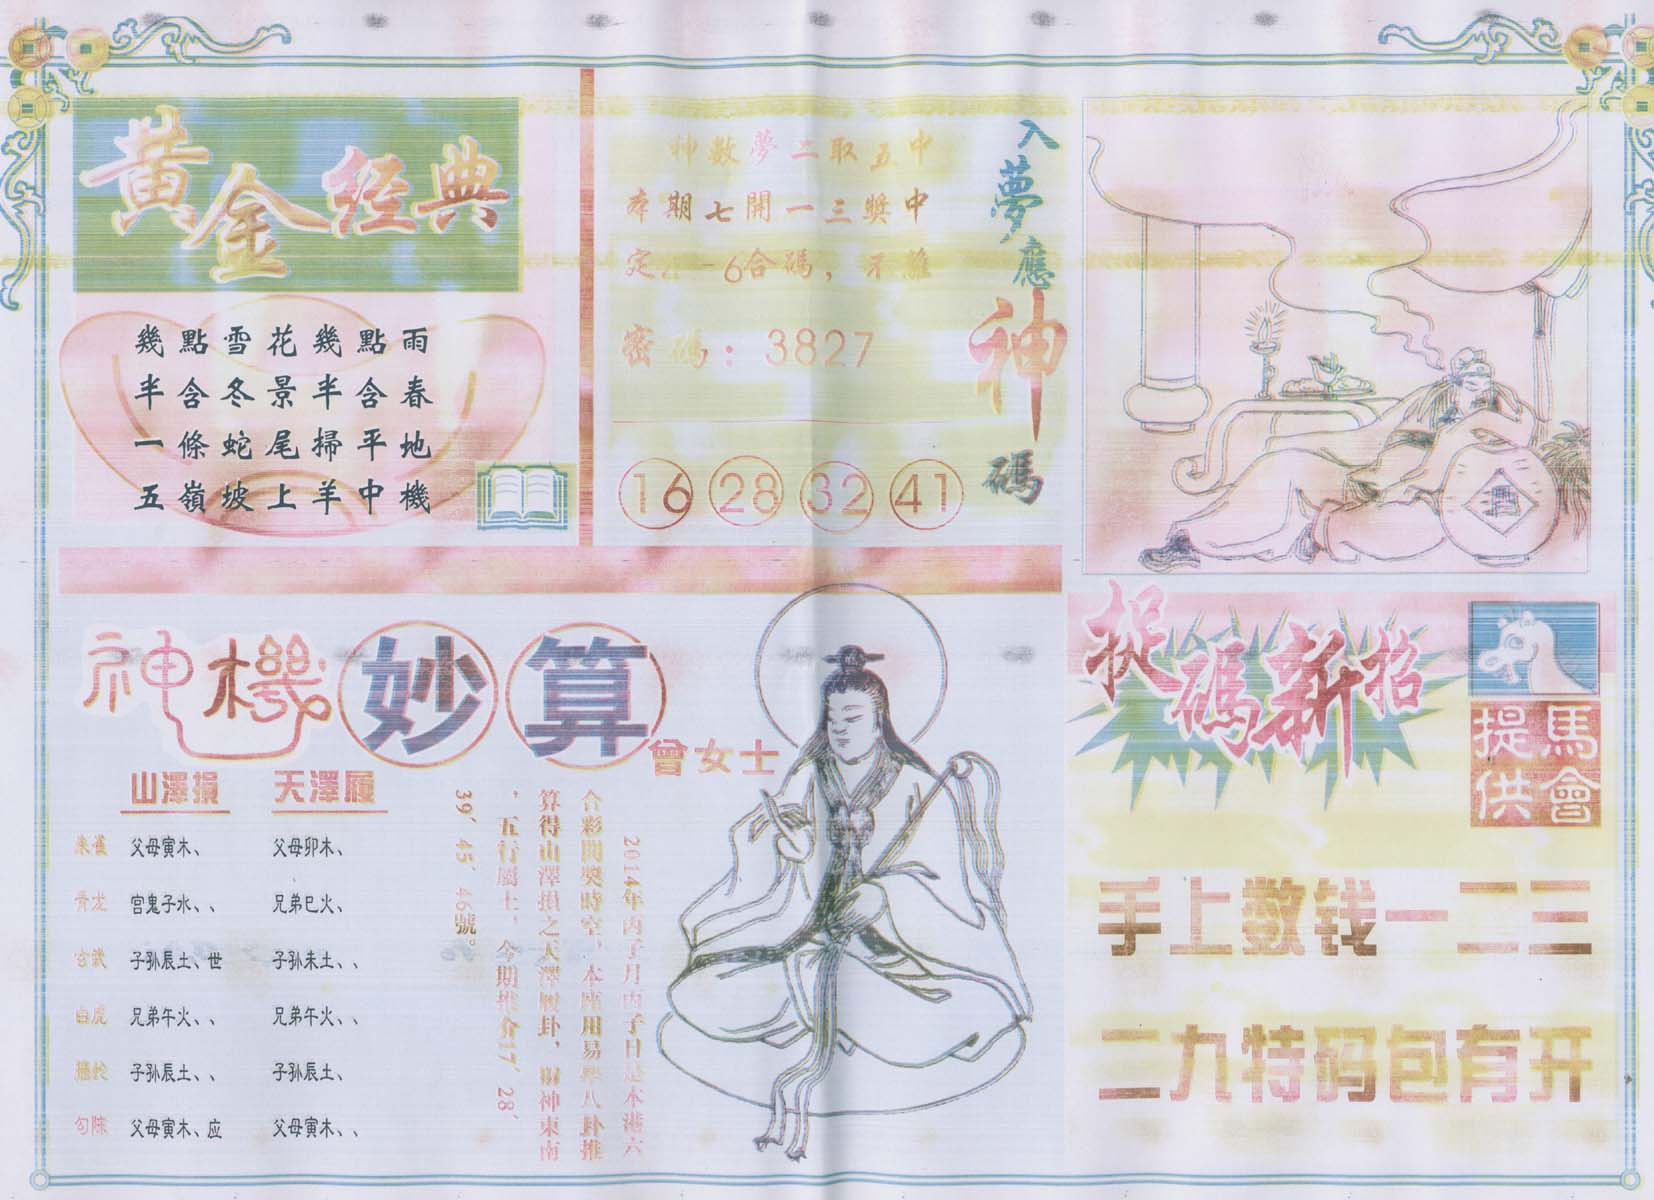 黃金经典
幾點雪花幾點雨
半含冬景半含春
一條蛇尾掃平地
五嶺坡上羊中機
神數夢二取五中
本期七開一三獎中
6合碼，不難
密碼：3827
16 28 32 41
入夢應神碼
神機妙算
曾女士
山澤損 天澤履
朱雀 父母寅木、 父母卯木、
青龙 宫鬼子水、、 兄弟巳火、
玄武 子孙辰土、世 子孙未土、、
白虎 兄弟午火、、 兄弟午火、、
騰蛇 子孙辰土、、 子孙辰土、
勾陈 父母寅木、应 父母寅木、、
2014年丙子月丙子日是本港六
合彩開獎時空，本座用易學八卦推
算得山澤損之天澤履卦，財神東南
，五行屬土，今期推介17、28、
39、45、46號。
捉碼新招
馬會
提供
手上数钱一二三
二九特码包有开